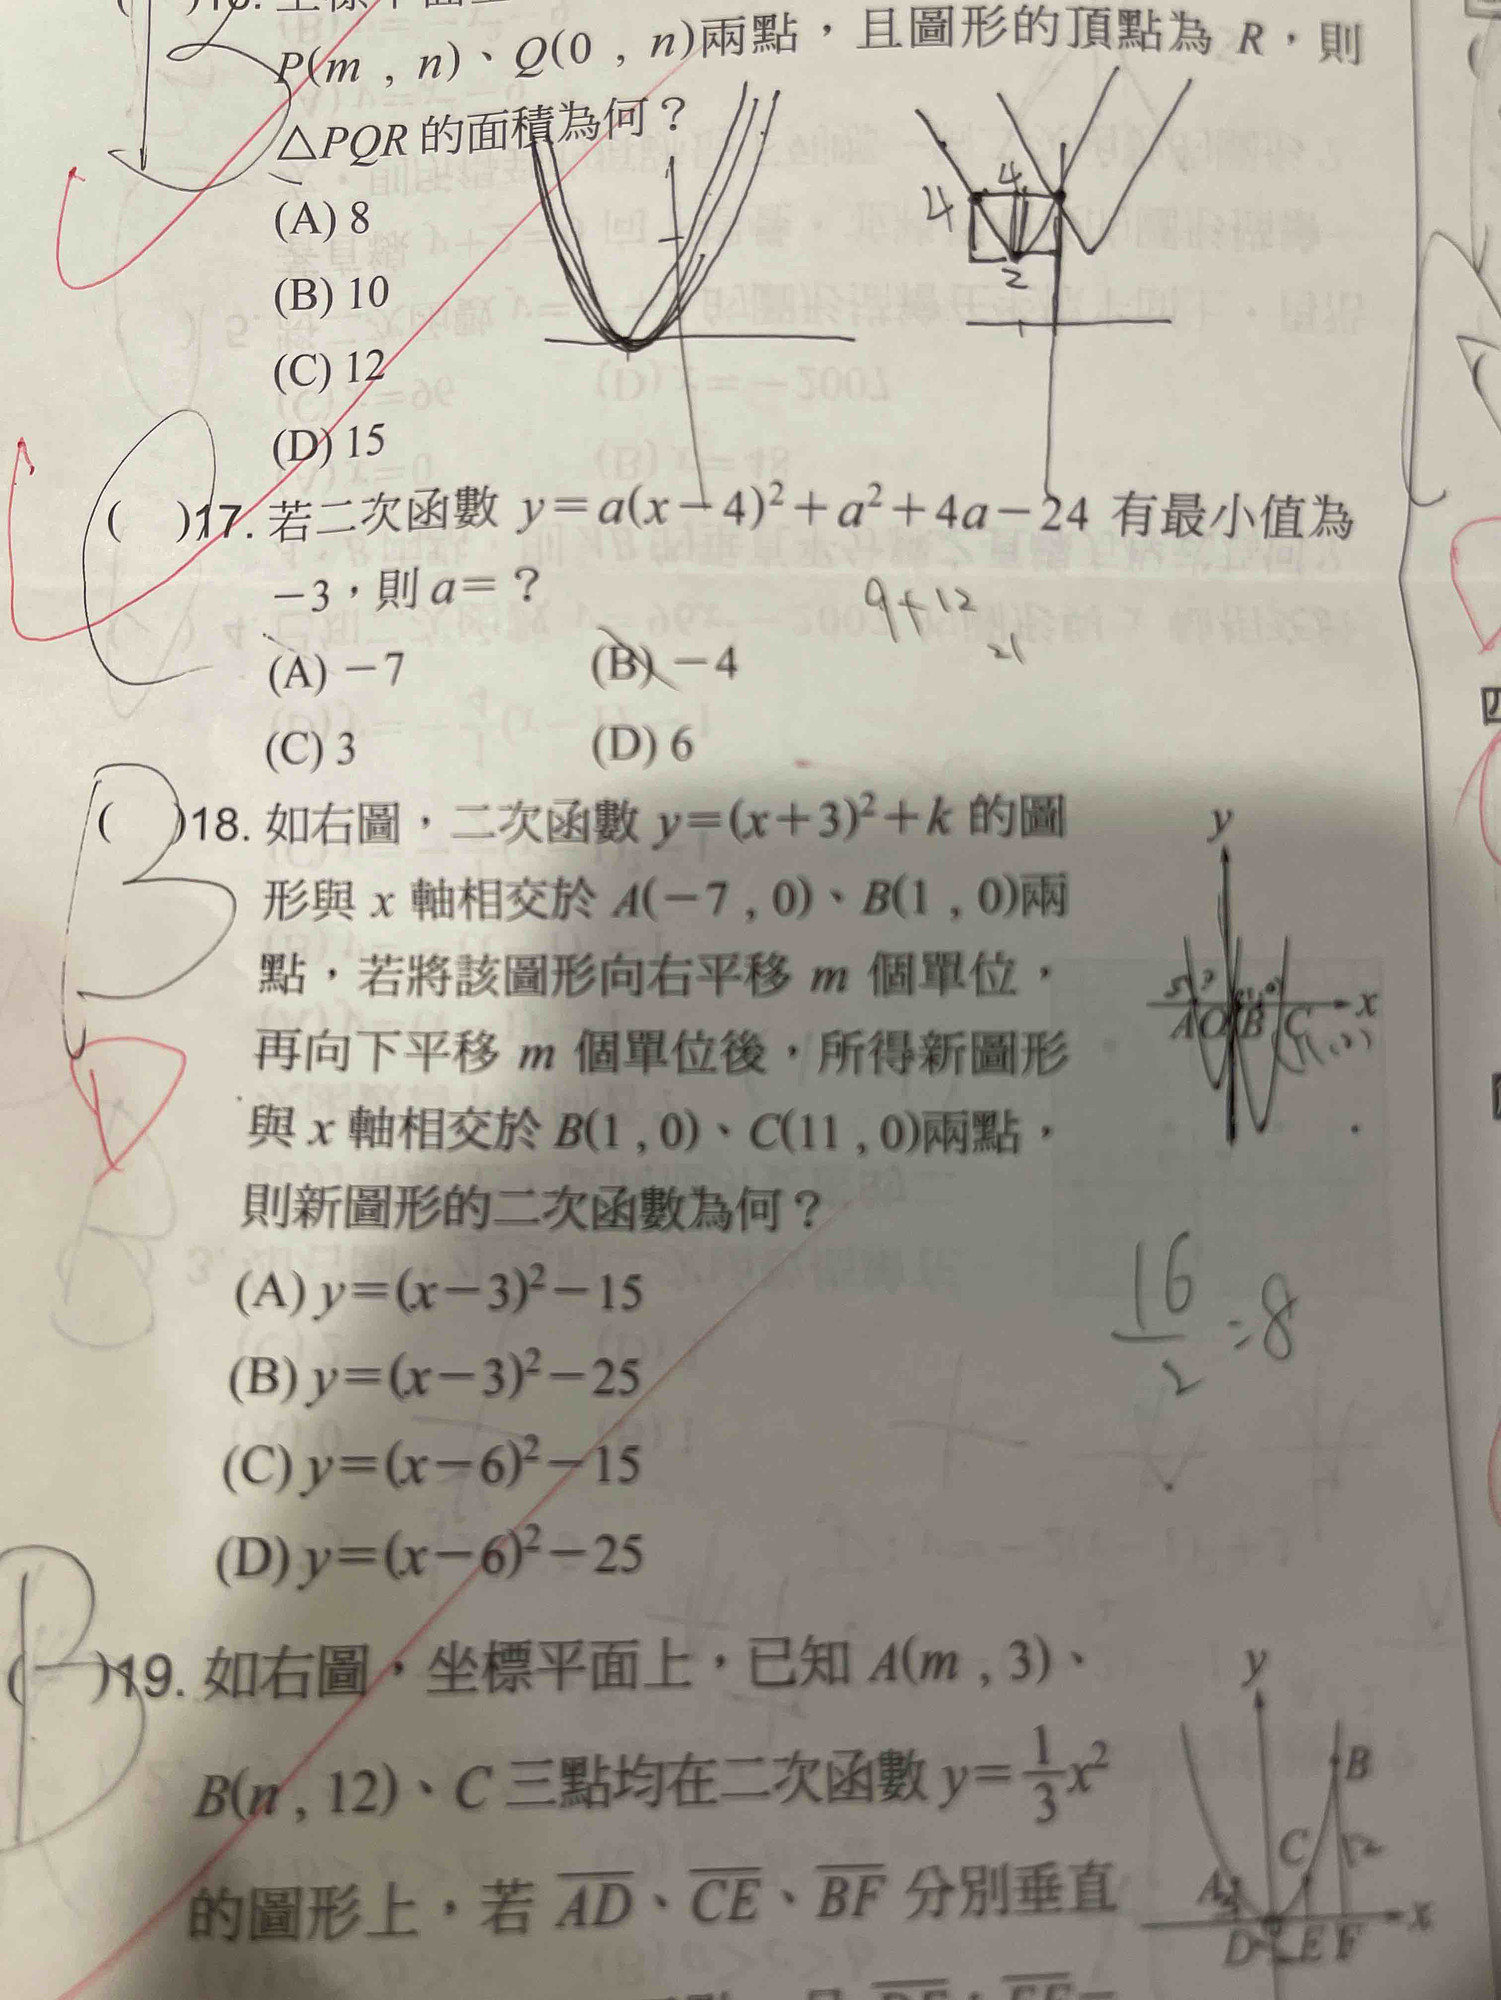 P(m , n)、Q(0 , n)兩點，且圖形的頂點為 R，則
△PQR 的面積為何？
(A) 8
(B) 10
(C) 12
(D) 15
4
4
2
( )17. 若二次函數 y＝a(x－4)²＋a²＋4a－24 有最小值為
－3，則 a＝？
9+12
21
(A) －7 (B) －4
(C) 3 (D) 6
( )18. 如右圖，二次函數 y＝(x＋3)²＋k 的圖
形與 x 軸相交於 A(－7 , 0)、B(1 , 0)兩
點，若將該圖形向右平移 m 個單位，
再向下平移 m 個單位後，所得新圖形
與 x 軸相交於 B(1 , 0)、C(11 , 0)兩點，
則新圖形的二次函數為何？
y
x
A O B C
(A) y＝(x－3)²－15
(B) y＝(x－3)²－25
(C) y＝(x－6)²－15
(D) y＝(x－6)²－25
16/2=8
B
D
( )19. 如右圖，坐標平面上，已知 A(m , 3)、
B(n , 12)、C 三點均在二次函數 y＝1/3x²
的圖形上，若 AD、CE、BF 分別垂直
B
y
B
C
12
A
x
D E F